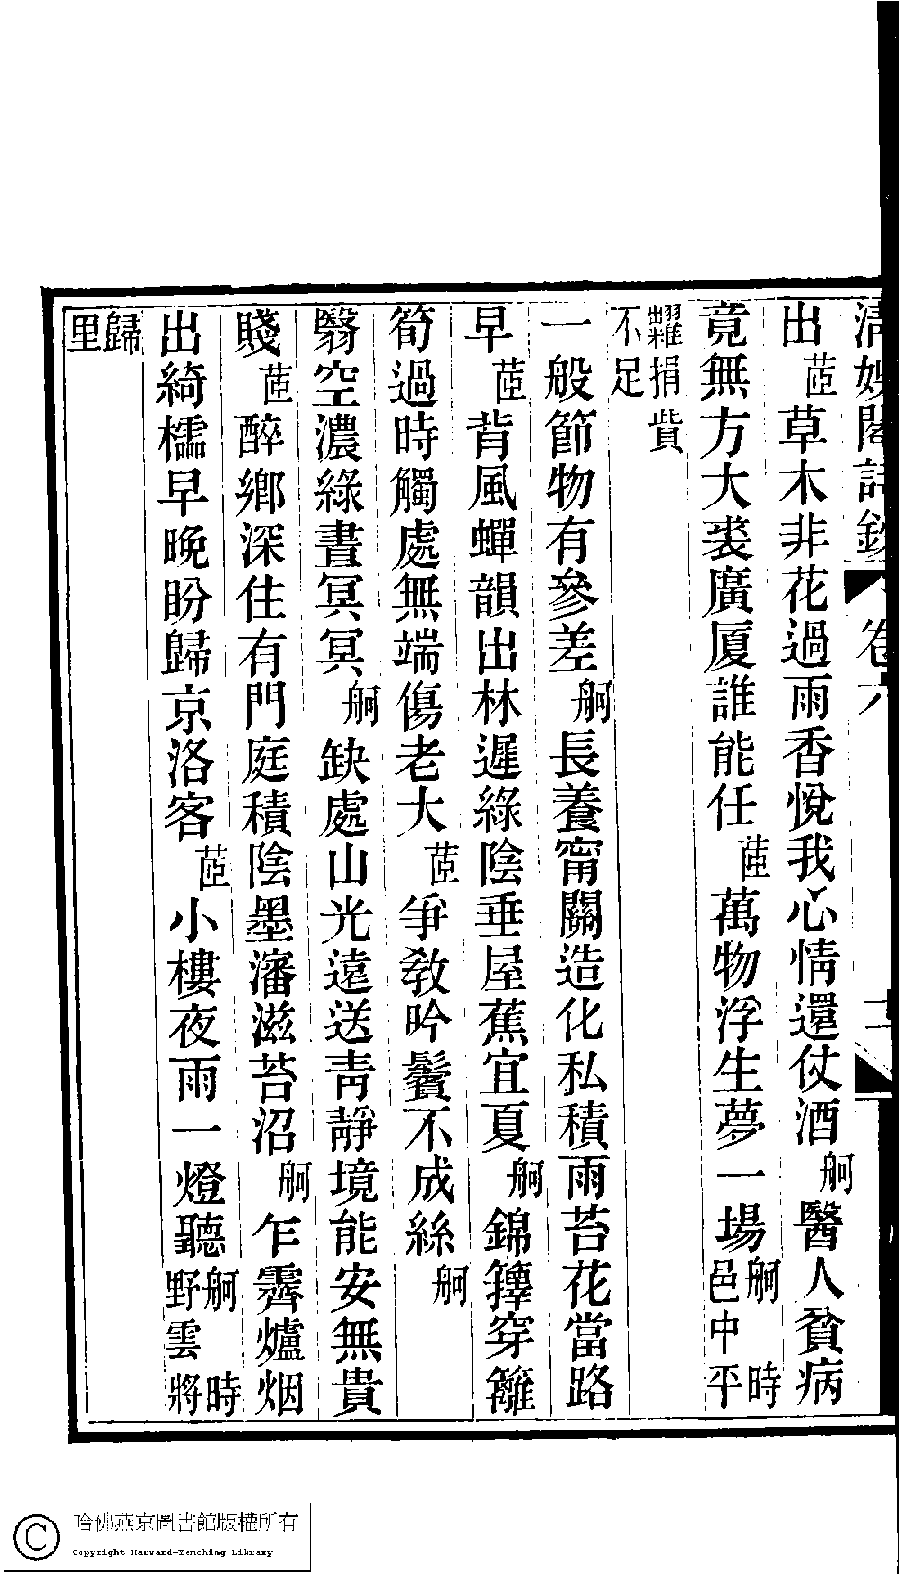 清娛閣詩鈔 卷六
出茝草木非花過雨香悅我心情還仗酒舸醫人貧病
竟無方大裘廣厦誰能任茝萬物浮生夢一場舸時邑中平
糶捐貲不足
一般節物有參差舸長養甯關造化私積雨苔花當路
早茝背風蟬韻出林遲綠陰垂屋蕉宜夏舸錦籜穿籬
筍過時觸處無端傷老大茝爭教吟鬢不成絲舸
翳空濃綠晝冥冥舸缺處山光遠送靑靜境能安無貴
賤茝醉鄉深住有門庭積陰墨瀋滋苔沼舸乍霽爐烟
出綺櫺早晚盼歸京洛客茝小樓夜雨一燈聽舸時野雲將
歸里
哈佛燕京圖書館版權所有
Copyright Harvard-Yenching Library